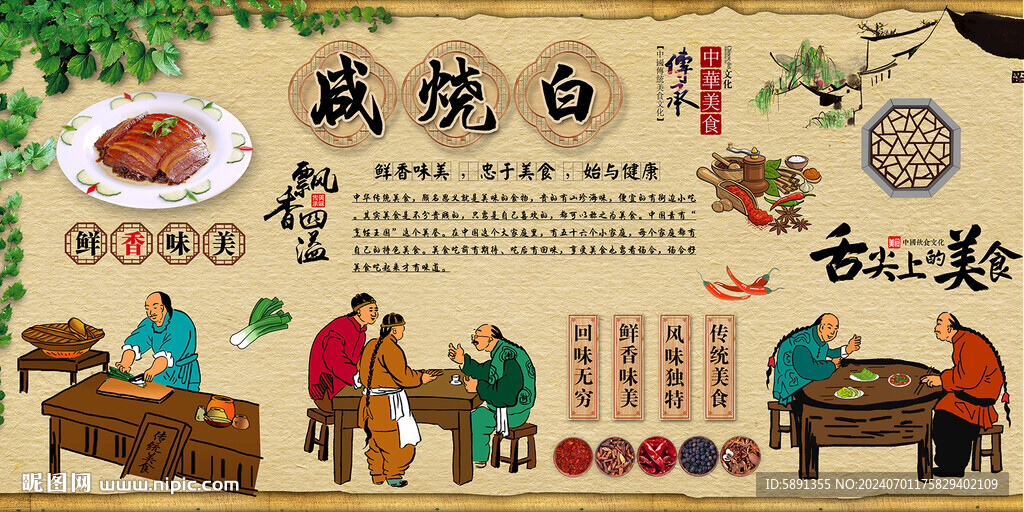 咸烧白
【中國傳統美食文化】
傳承
中華美食
飘香四溢
鲜香味美，忠于美食，始与健康
中华传统美食，顾名思义就是美味的食物，贵的有山珍海味，便宜的有街边小吃
。其实美食是不分贵贱的，只需是自己喜欢的，都可以称之为美食。中国素有“
烹饪王国”这个美誉，在中国这个大家庭里，有五十六个小家庭，每个家庭都有
自己的特色美食。美食吃前有期待，吃后有回味，享受美食也需看场合，场合好
美食吃起来才有味道。
鲜香味美
美食
中國飲食文化
舌尖上的美食
回味无穷
鲜香味美
风味独特
传统美食
传统美食
昵图网 www.nipic.com
ID:5891355 NO:20240701175829402109